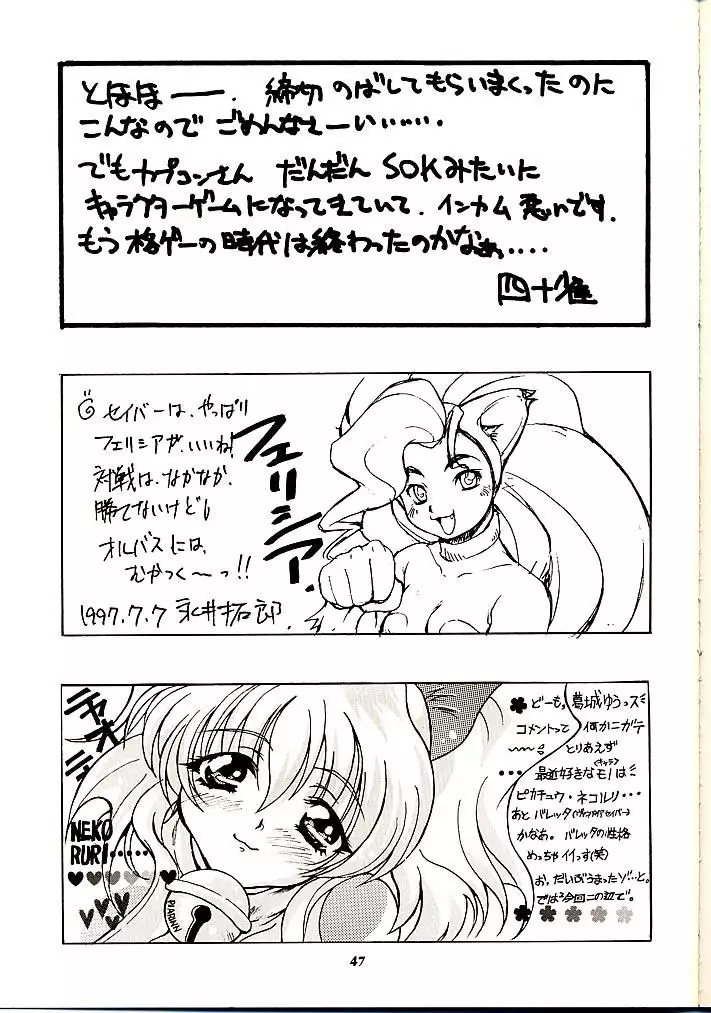 とほほ——. 締切 のばしてもらいまくったのに
こんなので ごめんなさーい……
でもカプコンさん だんだん SOKみたいに
キャラクターゲームになってきていて. インカム 悪いです.
もう格ゲーの時代は終わったのかなぁ….
セイバーは、やっぱり
フェリシアが、いいね!
対戦は、なかなか、
勝てないけど!
オルバスには、
むかつく〜っ!!
1997.7.7 永井拓郎
フェリシア
ニャオン
NEKO
RURI……
PIARNN
どーも, 葛城ゆうっス
コメントって 何かニガテ
とりあえず
(キャラ)
… 最近好きなモノは
ピカチュウ・ネコルリ・・・
あと バレッタ(ヴァンパイアセイバー)
かなあ。 バレッタの性格
めっちゃイイっす(笑)
お。だいぶうまったゾ…と。
では今回この辺で。
47